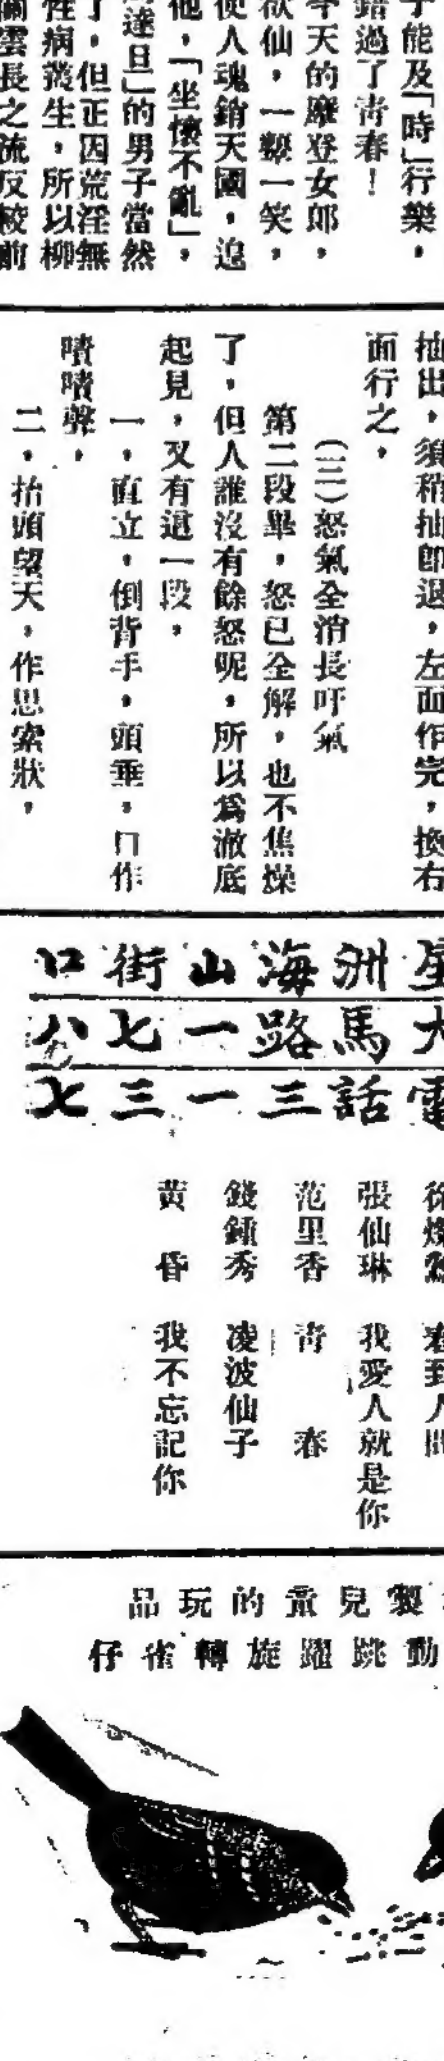 子能及「時」行樂，
錯過了青春！
今天的摩登女郎，
欲仙，一顰一笑，
使人魂銷天國，追
他，「坐懷不亂」，
達旦」的男子當然
了，但正因荒淫無
性病叢生，所以柳
關雲長之流反較前
抽出，須稍抽卽退，左面作完，換右
面行之，
(三)怒氣全消長吁氣
第二段畢，怒已全解，也不焦燥
了，但人誰沒有餘怒呢，所以爲澈底
起見，又有這一段，
一，直立，倒背手，頭垂，口作
嘖嘖聲，
二，抬頭望天，作思索狀，
星洲海山街口
大馬路一七八
電話三一三七
春到人間
張仙琳　我愛人就是你
范里香　青春
錢鍾秀　凌波仙子
黃昏　我不忘記你
製兒童的玩品
動跳躍旋轉雀仔